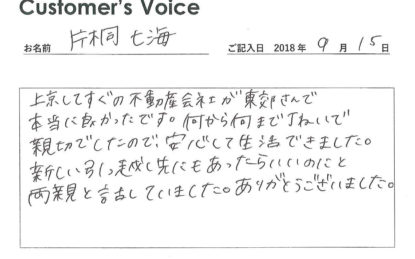 Customer's Voice
お名前 片桐 七海 ご記入日 2018年 9月 15日
上京してすぐの不動産会社が東郊さんで
本当に良かったです。何から何まで丁ねいで
親切でしたので安心して生活できました。
新しい引っ越し先にもあったらいいのにと
両親と話していました。ありがとうございました。